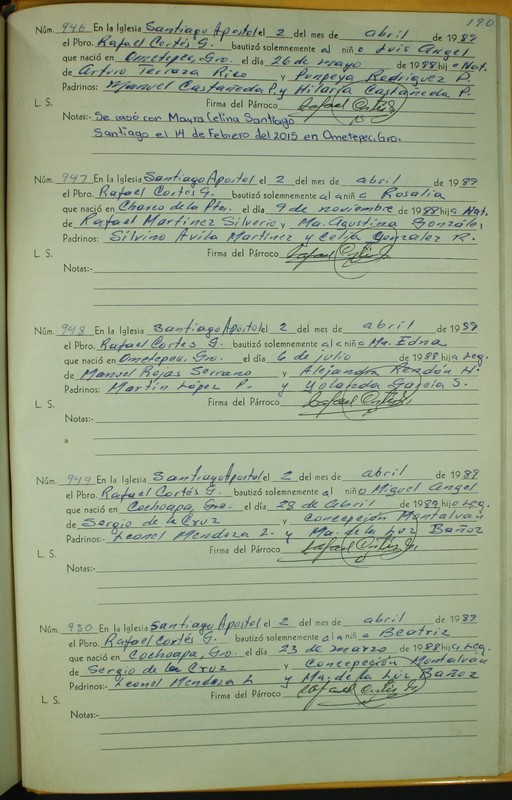 190
Núm. 946 En la Iglesia Santiago Apostol el 2 del mes de abril de 1989
el Pbro. Rafael Cortés G. bautizó solemnemente al niño Luis Angel
que nació en Ometepec, Gro. el día 26 de mayo de 1988 hijo Nat.
de Arturo Terraza Rico y Pompeya Rodriguez P.
Padrinos: Manuel Castañeda P. y Hilaria Castañeda P.
L. S. Firma del Párroco Rafael Cortés G.
Notas:- Se casó con Mayra Celina Santiago
Santiago el 14 de Febrero del 2015 en Ometepec, Gro.
Núm. 947 En la Iglesia Santiago Apostol el 2 del mes de abril de 1989
el Pbro. Rafael Cortés G. bautizó solemnemente a la niña Rosalia
que nació en Charco de la Pta. el día 9 de noviembre de 1988 hija Nat.
de Rafael Martinez Silverio y Ma. Agustina González
Padrinos: Silvino Avila Martinez y Celia Gonzalez R.
L. S. Firma del Párroco Rafael Cortés G.
Notas:-
Núm. 948 En la Iglesia Santiago Apostol el 2 del mes de abril de 1989
el Pbro. Rafael Cortes G. bautizó solemnemente a la niña Ma. Edna
que nació en Ometepec, Gro. el día 6 de julio de 1988 hija Leg.
de Manuel Rojas Serrano y Alejandra Rendón H.
Padrinos: Martín López P. y Yolanda García S.
L. S. Firma del Párroco Rafael Cortés G.
Notas:-
Núm. 949 En la Iglesia Santiago Apostol el 2 del mes de abril de 1989
el Pbro. Rafael Cortés G. bautizó solemnemente al niño Miguel Angel
que nació en Cochoapa, Gro. el día 28 de Abril de 1984 hijo Leg.
de Sergio de la Cruz y Concepción Montalvan
Padrinos:- Leonel Mendoza L. y Ma. de la Luz Bañoz
L. S. Firma del Párroco Rafael Cortés G.
Notas:-
Núm. 950 En la Iglesia Santiago Apostol el 2 del mes de abril de 1989
el Pbro. Rafael Cortés G. bautizó solemnemente a la niña Beatriz
que nació en Cochoapa, Gro. el día 23 de marzo de 1988 hija Leg.
de Sergio de la Cruz y Concepción Montalvan
Padrinos:- Leonel Mendoza L y Ma. de la Luz Bañoz
L. S. Firma del Párroco Rafael Cortés G.
Notas:-